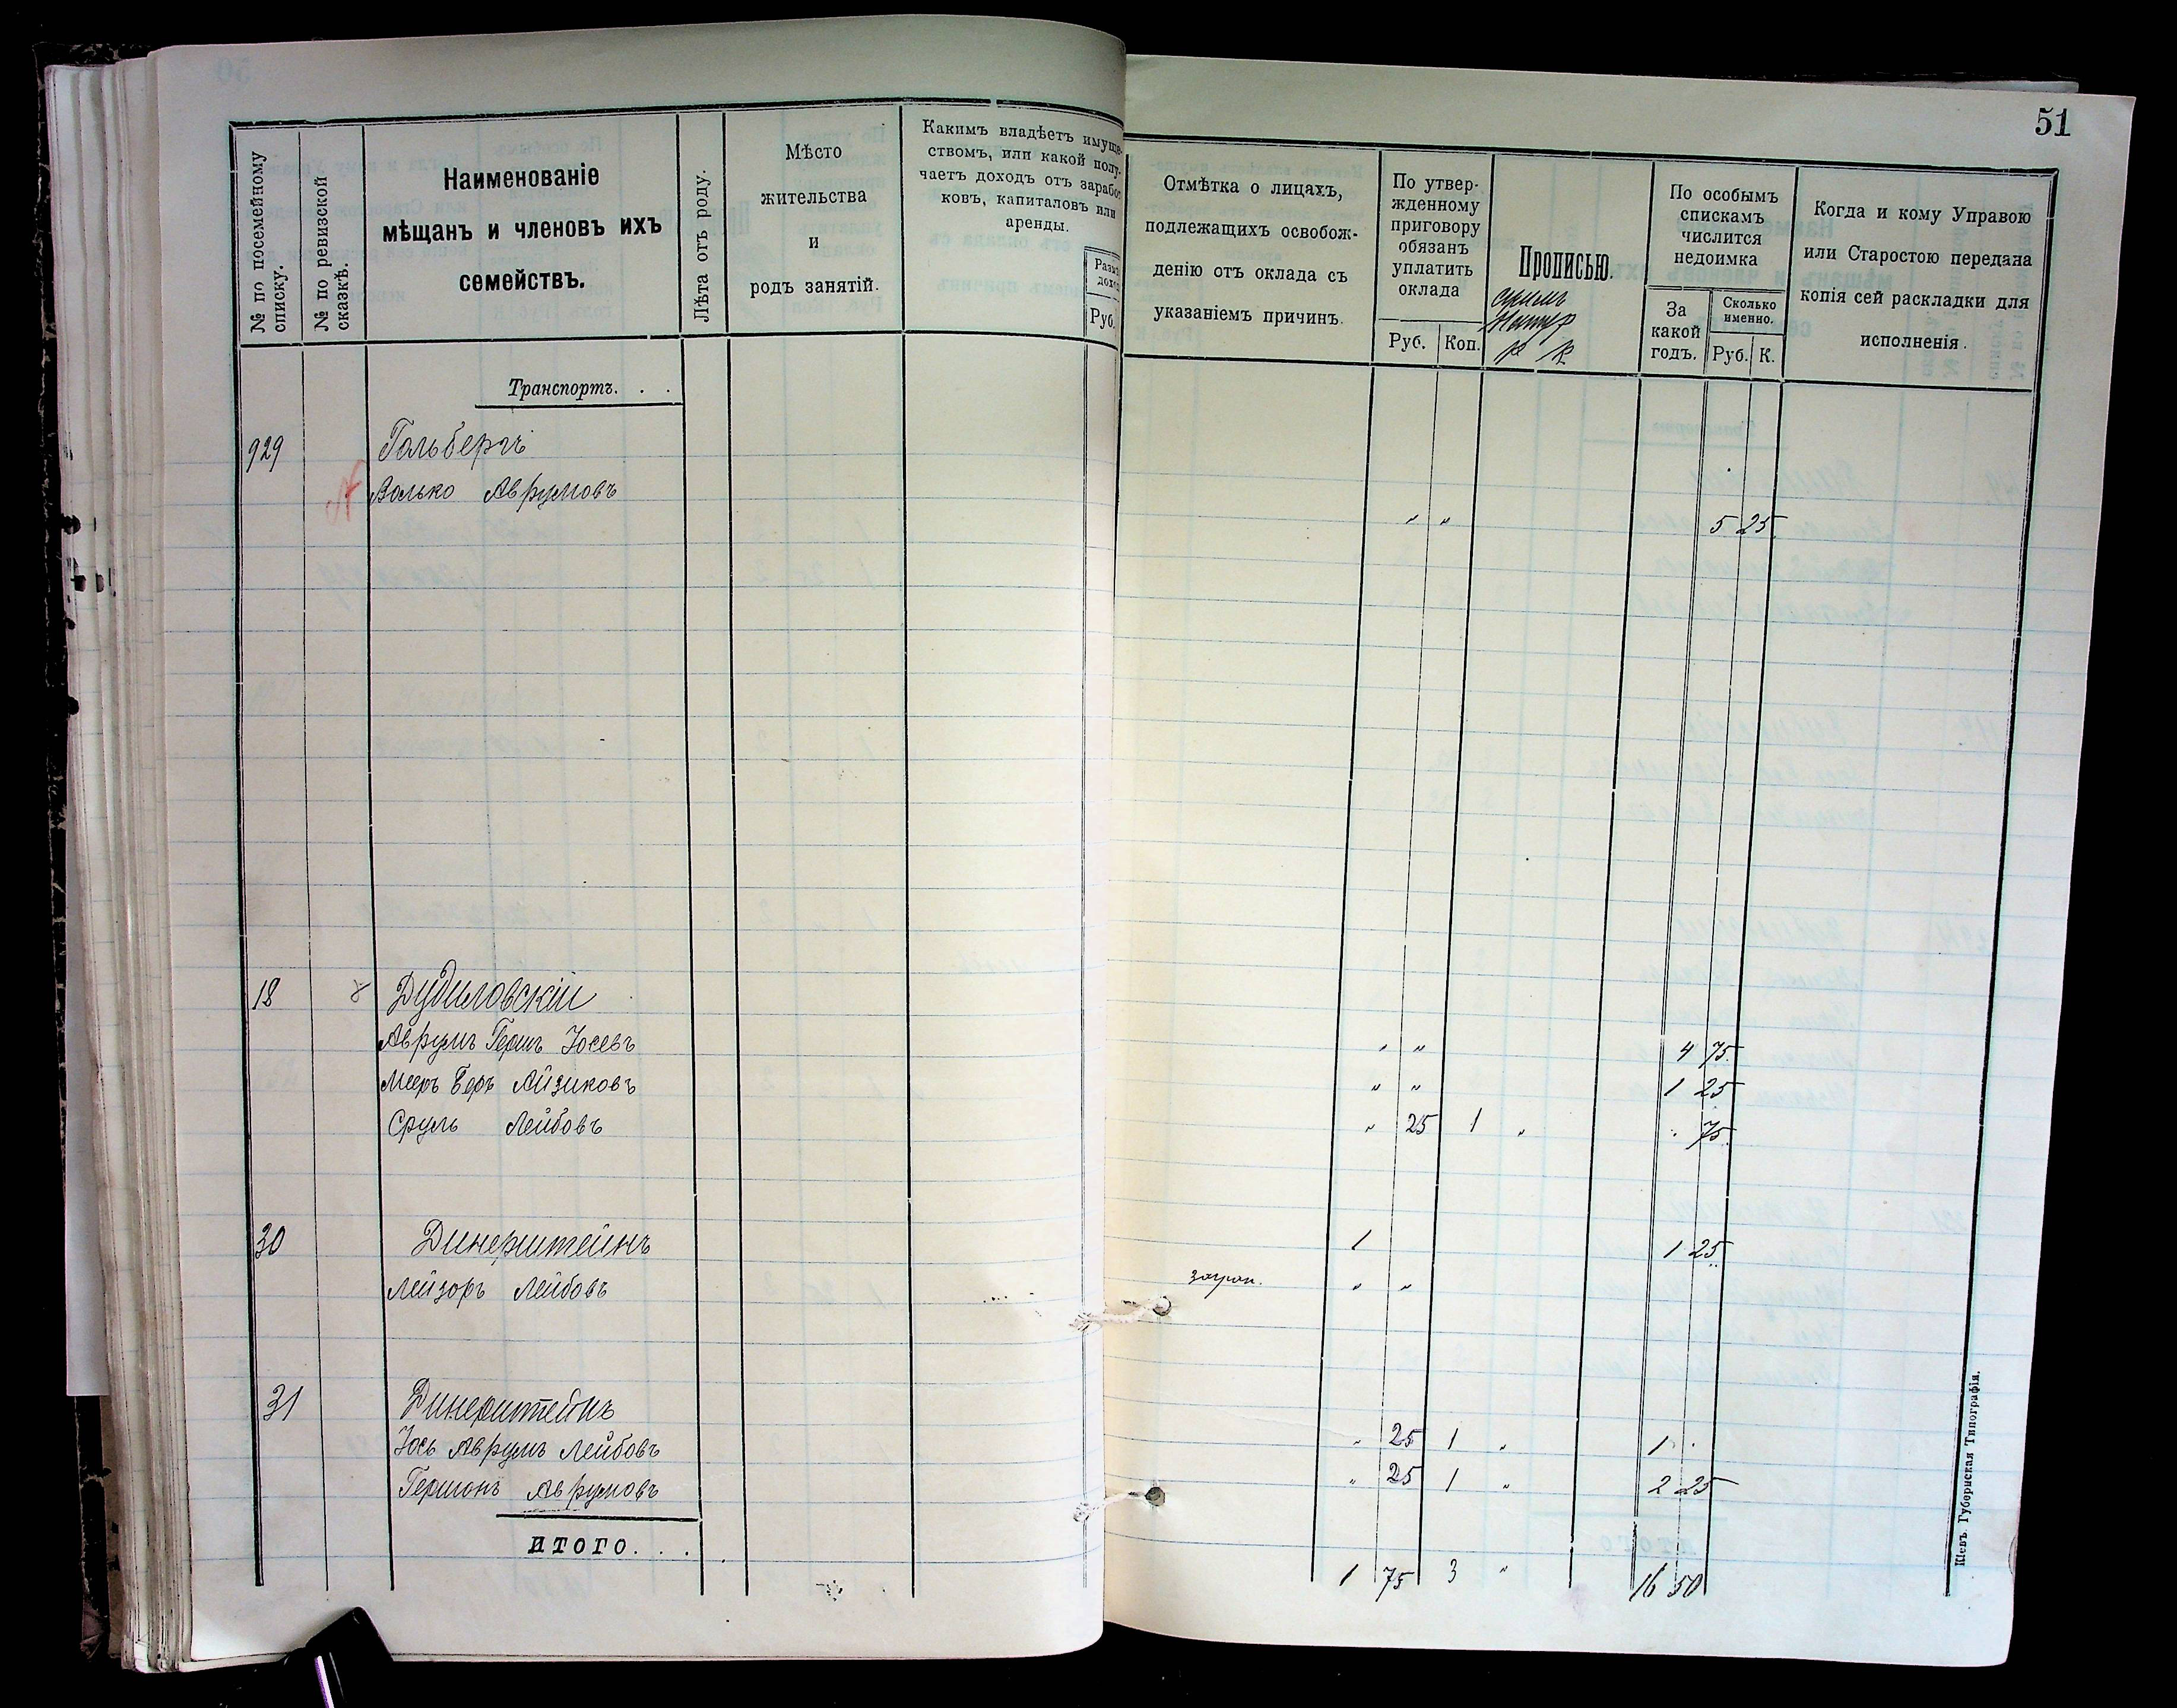 51
№ по посемейному списку.
№ по ревизской сказкѣ.
Наименованіе
мѣщанъ и членовъ ихъ
семействъ.
Лѣта отъ роду.
Мѣсто
жительства
и
родъ занятій.
Какимъ владѣетъ имуще-
ствомъ, или какой полу-
чаетъ доходъ отъ заработ
ковъ, капиталовъ или
аренды.
Разм.
доход
Руб.
Отмѣтка о лицахъ,
подлежащихъ освобож-
денію отъ оклада съ
указаніемъ причинъ.
По утвер-
жденному
приговору
обязанъ
уплатить
оклада
Руб. Коп.
Прописью.
р к
По особымъ
спискамъ
числится
недоимка
За
какой
годъ.
Сколько
именно.
Руб. К.
Когда и кому Управою
или Старостою передана
копія сей раскладки для
исполненія.
Транспортъ. . .
929 Гольбергъ
Волько Аврумовъ
" " 5 25
18 Дубиловскій
Аврумъ Гершъ Іосевъ " " 4 75
Мееръ Беръ Айзиковъ " " 1 25
Сруль Лейбовъ " 25 1 " " 75
30 Динерштейнъ 1 1 25
Лейзоръ Лейбовъ " "
31 Динерштейнъ
Іось Аврумъ Лейбовъ " 25 1 " 1 "
Гершонъ Аврумовъ " 25 1 " 2 25
ИТОГО. . .
1 75 3 " 16 50
Кіевъ. Губернская Типографія.